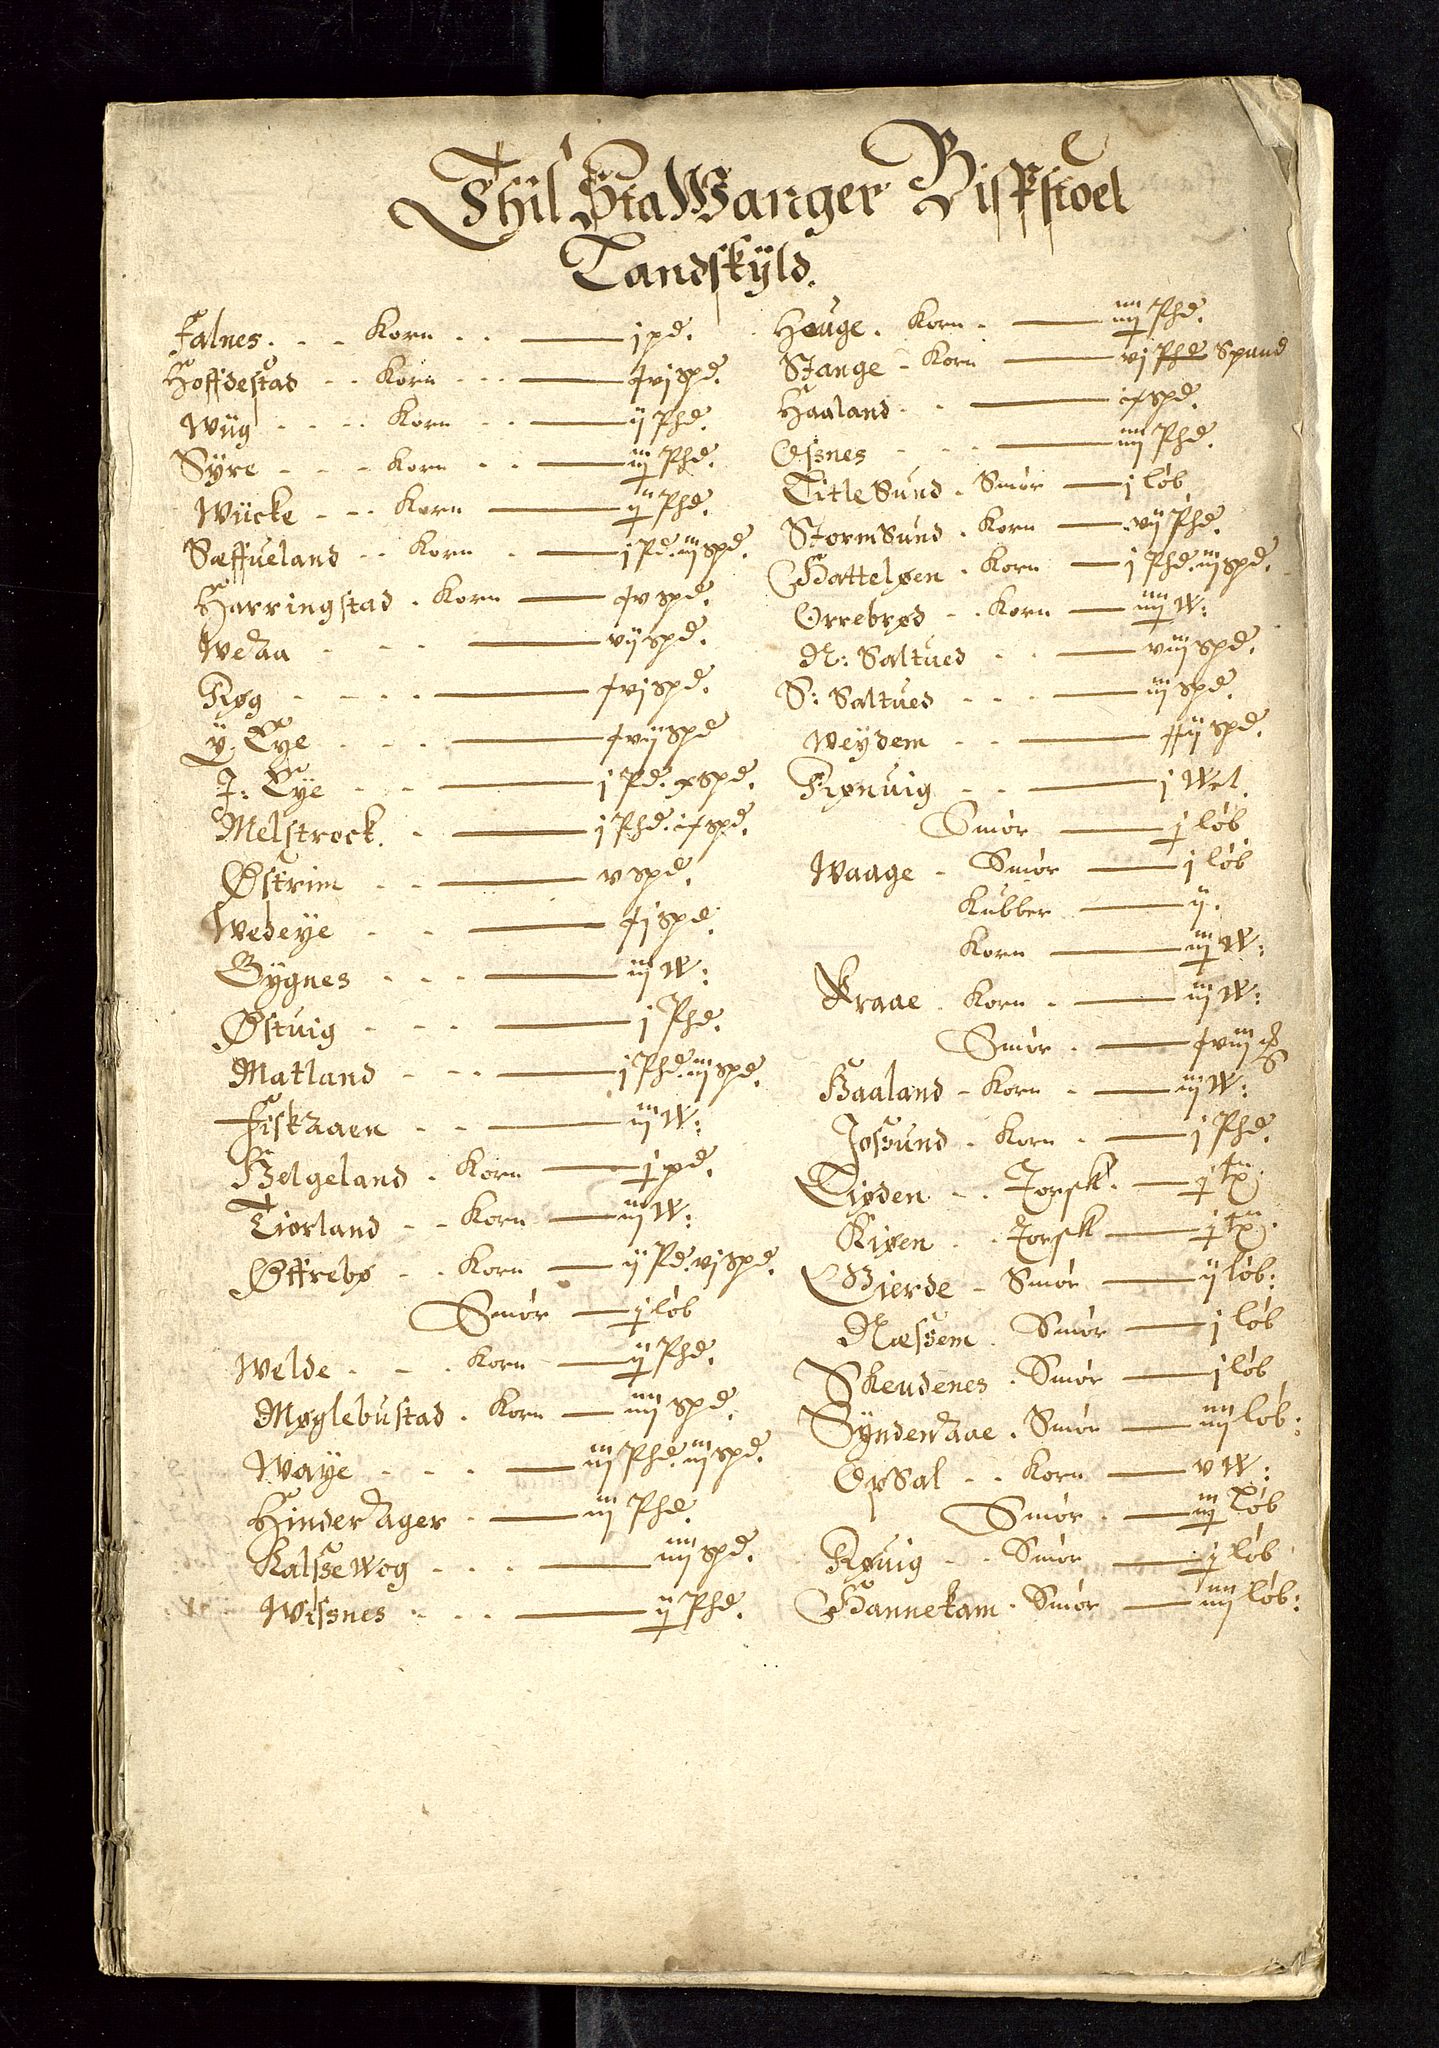 Thil StaWanger Bispstoel
Landskÿld.
Falnes. Korn j pd.
Hoffdestad Korn vj spd.
Wiig Korn ij Phd.
Sÿre Korn iij Phd.
Wücke Korn ij Phd.
Sæffueland Korn j Pd. iij spd.
Harringstad. Korn v spd.
Wedaa vij spd.
Røg vj spd.
ÿ. Eÿe vij spd
J: Eÿe j Pd. x spd.
Melstrock. j Phd. spd.
Østrim v spd.
Wedeÿe j spd.
Gÿgnes iij W:
Østuig j Phd.
Matland j Phd. iij spd.
Fiskaaen iij W:
Helgeland. Korn j pd.
Tiorland Korn iij W:
Øffrebø Korn ij Pd. vj spd.
Smør j løb
Welde Korn ij Phd.
Møglebustad. Korn iiij spd.
Waÿe iij Phd. iij spd.
Hinderager iij Phd.
Kalssewog iiij spd.
Wissnes ij Phd.
Houge. Korn iiij Phd.
Stange Korn vj Phd Spand
Haaland spd.
Ossnes iiij Phd.
Litlesund. Smør j løb
Stormsund. Korn vij Phd.
Hatteløen. Korn j Phd. iij spd.
Orrebrød Korn iiij W:
N: Saltued viij spd.
S: Saltued iij spd.
Weÿdem ij spd.
Rønuig j Wet.
Smør j løb
Waage Smør j løb
Kubber ij.
Korn iij W:
Kraae. Korn iij W:
Smør. viij
Haaland Korn iij W:
Jossund. Korn j Phd.
Liøden Torsk. j
Kiøen Torsk j
Gierde Smør ij løb:
Næssem. Smør j løb
Skeudenes. Smør j løb
Sÿnderaae. Smør iiij løb:
Opsal Korn v W:
Smør iij løb
Røuig Smør j løb
Hannekam. Smør iiij løb: